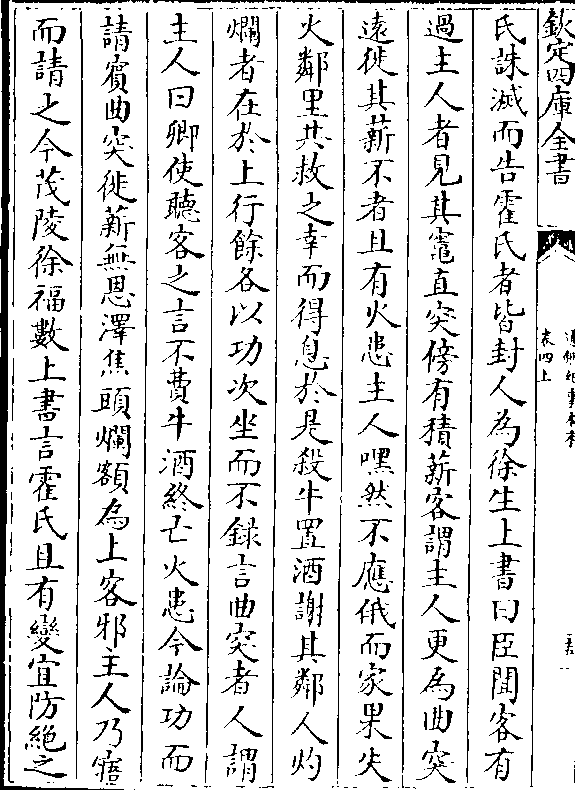 欽定四庫全書
卷四上
氏誅滅而告霍氏者皆封人為徐生上書曰臣聞客有
過主人者見其竈直突傍有積薪客謂主人更為曲突
遠徙其薪不者且有火患主人嘿然不應俄而家果失
火鄰里共救之幸而得息於是殺牛置酒謝其鄰人灼
爛者在於上行餘各以功次坐而不録言曲突者人謂
主人曰卿使聽客之言不費牛酒終亡火患今論功而
請賔曲突徙薪無恩澤焦頭爛額為上客邪主人乃寤
而請之今茂陵徐福數上書言霍氏且有變宜防絶之